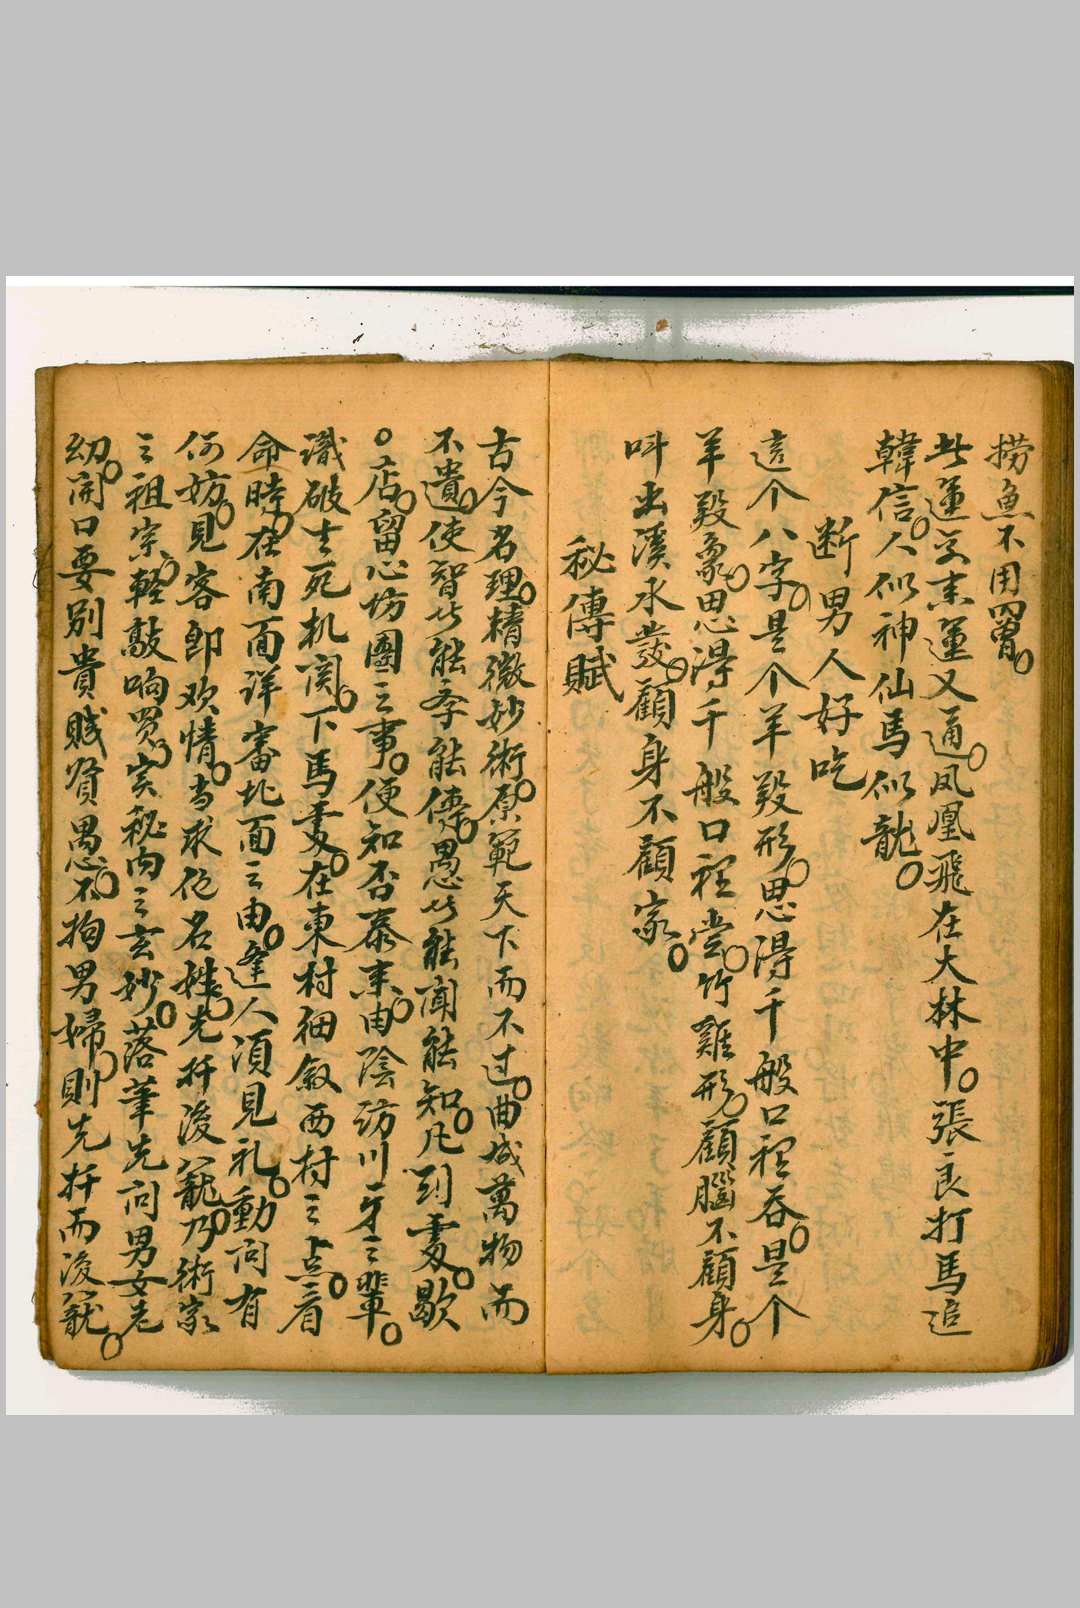 捞魚不用罾。
此運交来運又通。凤凰飛在大林中。張良打馬追
韓信。人似神仙馬似龍。
断男人好吃
這个八字是个羊殺形。思得千般口裡吞。是个
羊殺象。思得千般口裡嘗。竹雞形。顧腦不顧身。
叫出溪水發。顧身不顧家。
秘傳賦
古今名理。精微妙術。原範天下而不过。曲成萬物而
不遺。使智者能学能傳。愚者能闻能知。凡到處。歇
。店。留心坊團之事。便知否泰来由。陰访川牙之輩。
識破生死机関。下馬處。在東村细叙西村之点。看
命時。在南面详審北面之由。逢人須見礼。動问有
何妨。見客即欢情。当求他名姓。先扦後𥫣。乃術家
之祖宗。軽敲响罢。实秘内之玄妙。落筆先问男女老
幼。開口要别貴賤贫愚。不拘男婦。則先扦而後𥫣。